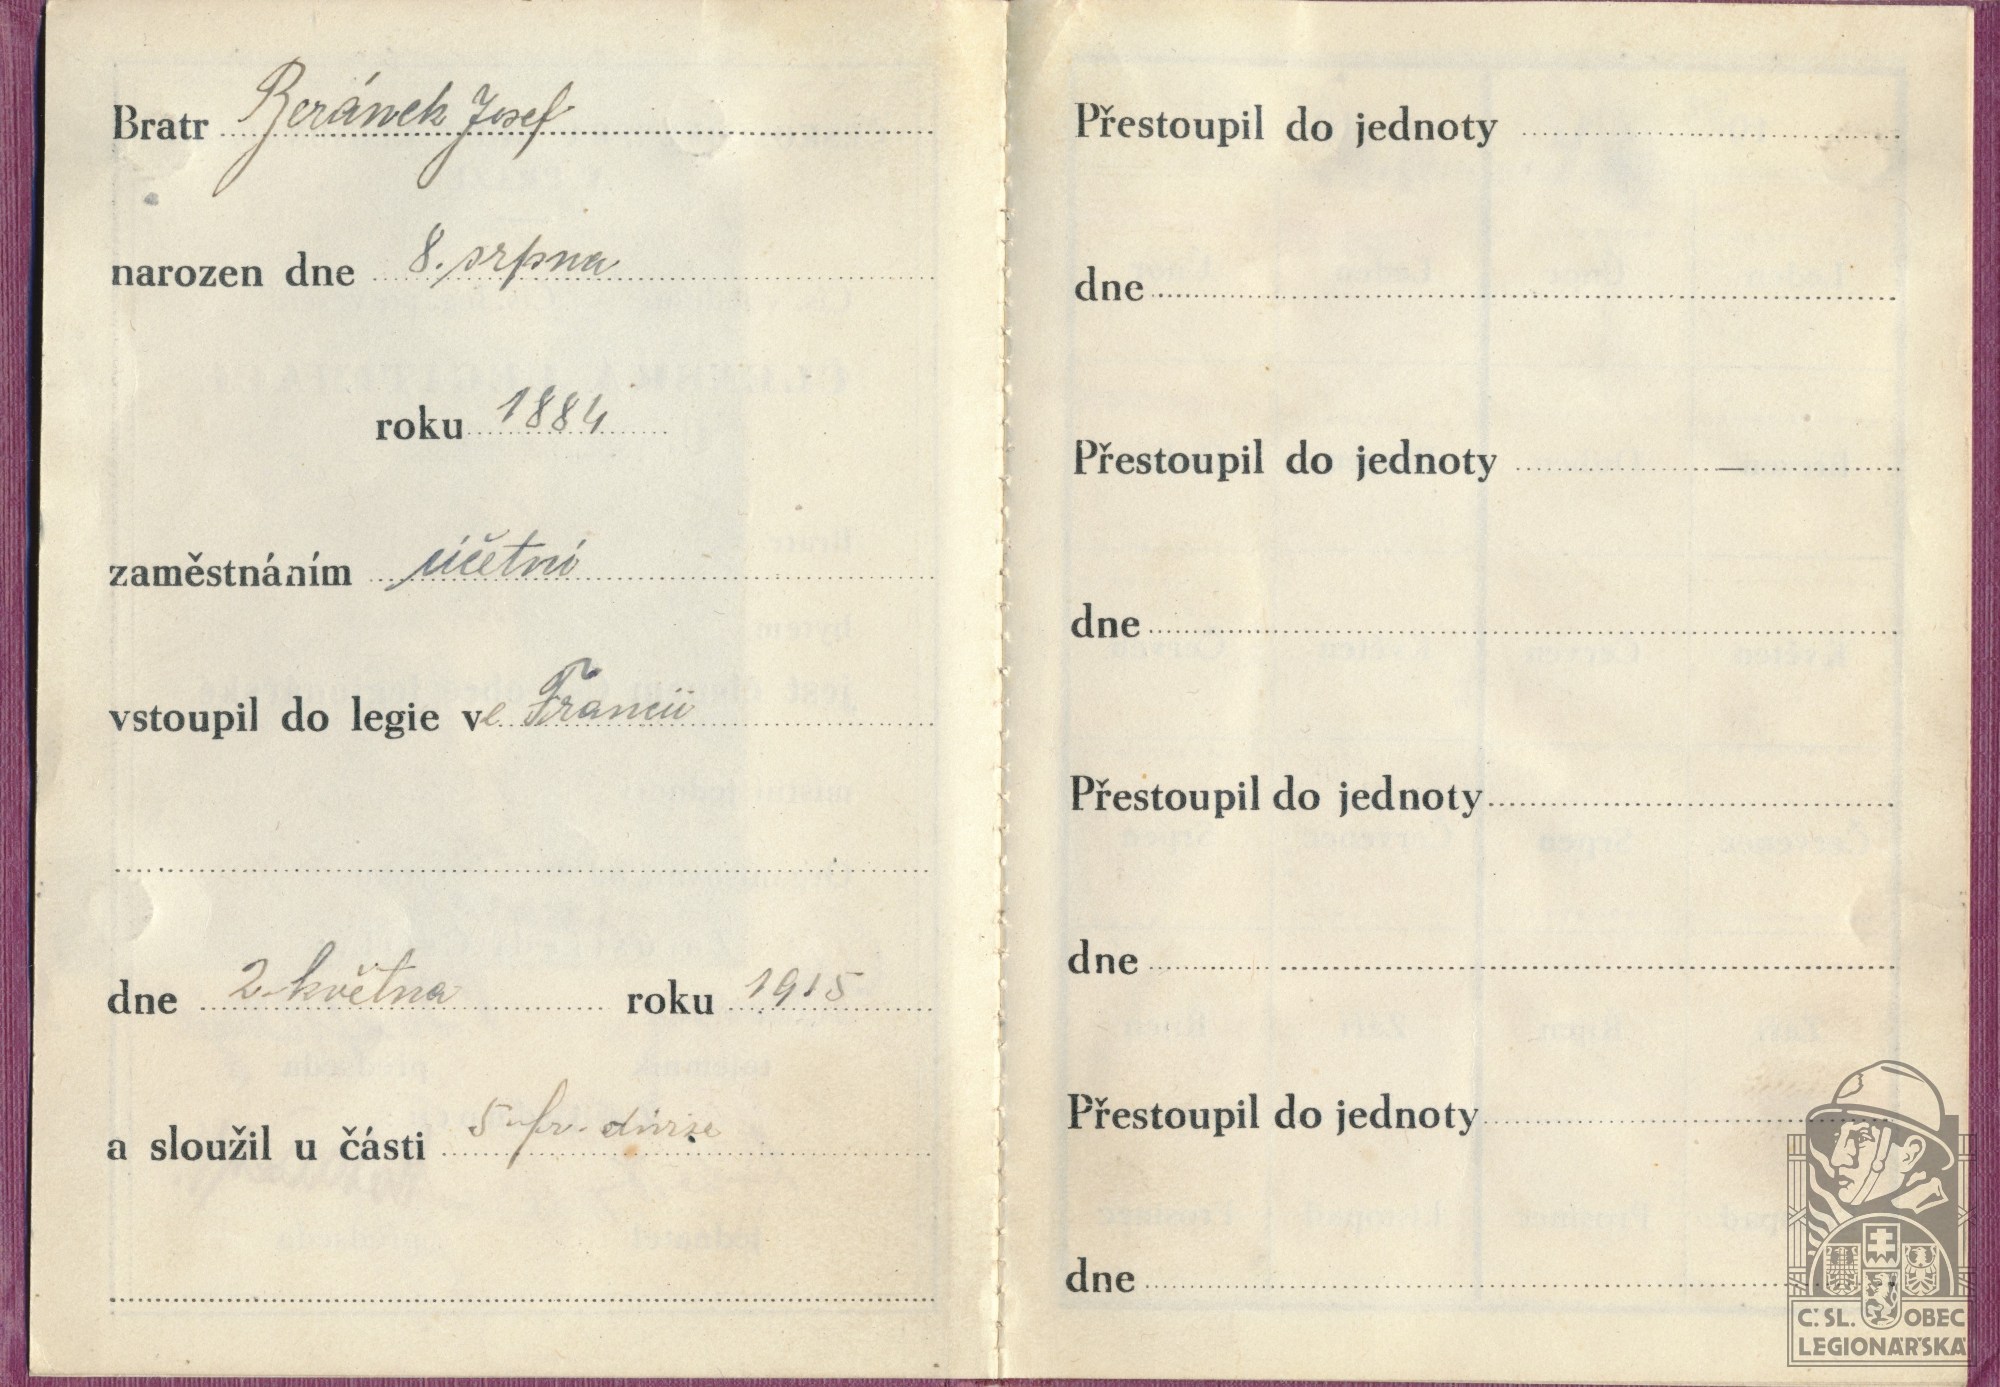 Bratr Beránek Josef
narozen dne 8. srpna
roku 1884
zaměstnáním účetní
vstoupil do legie ve Francii
dne 2. května roku 1915
a sloužil u části 5. fr. divise
Přestoupil do jednoty
dne
Přestoupil do jednoty
dne
Přestoupil do jednoty
dne
Přestoupil do jednoty
dne
Č.SL. OBEC
LEGIONÁŘSKÁ